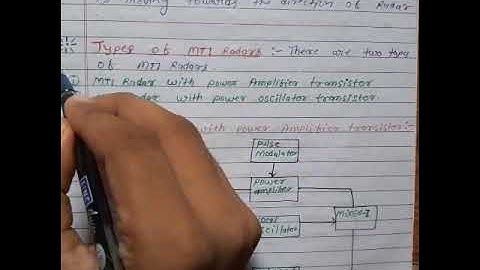 is moving towards the direction of Radar
Types of MTI Radars :- There are two type
of MTI Radars
MTI Radar with power Amplifier transistor
Radar with power oscillator transistor
with power Amplifier transistor:-
Pulse
modulator
Power
amplifier
mixer-I
oscillator